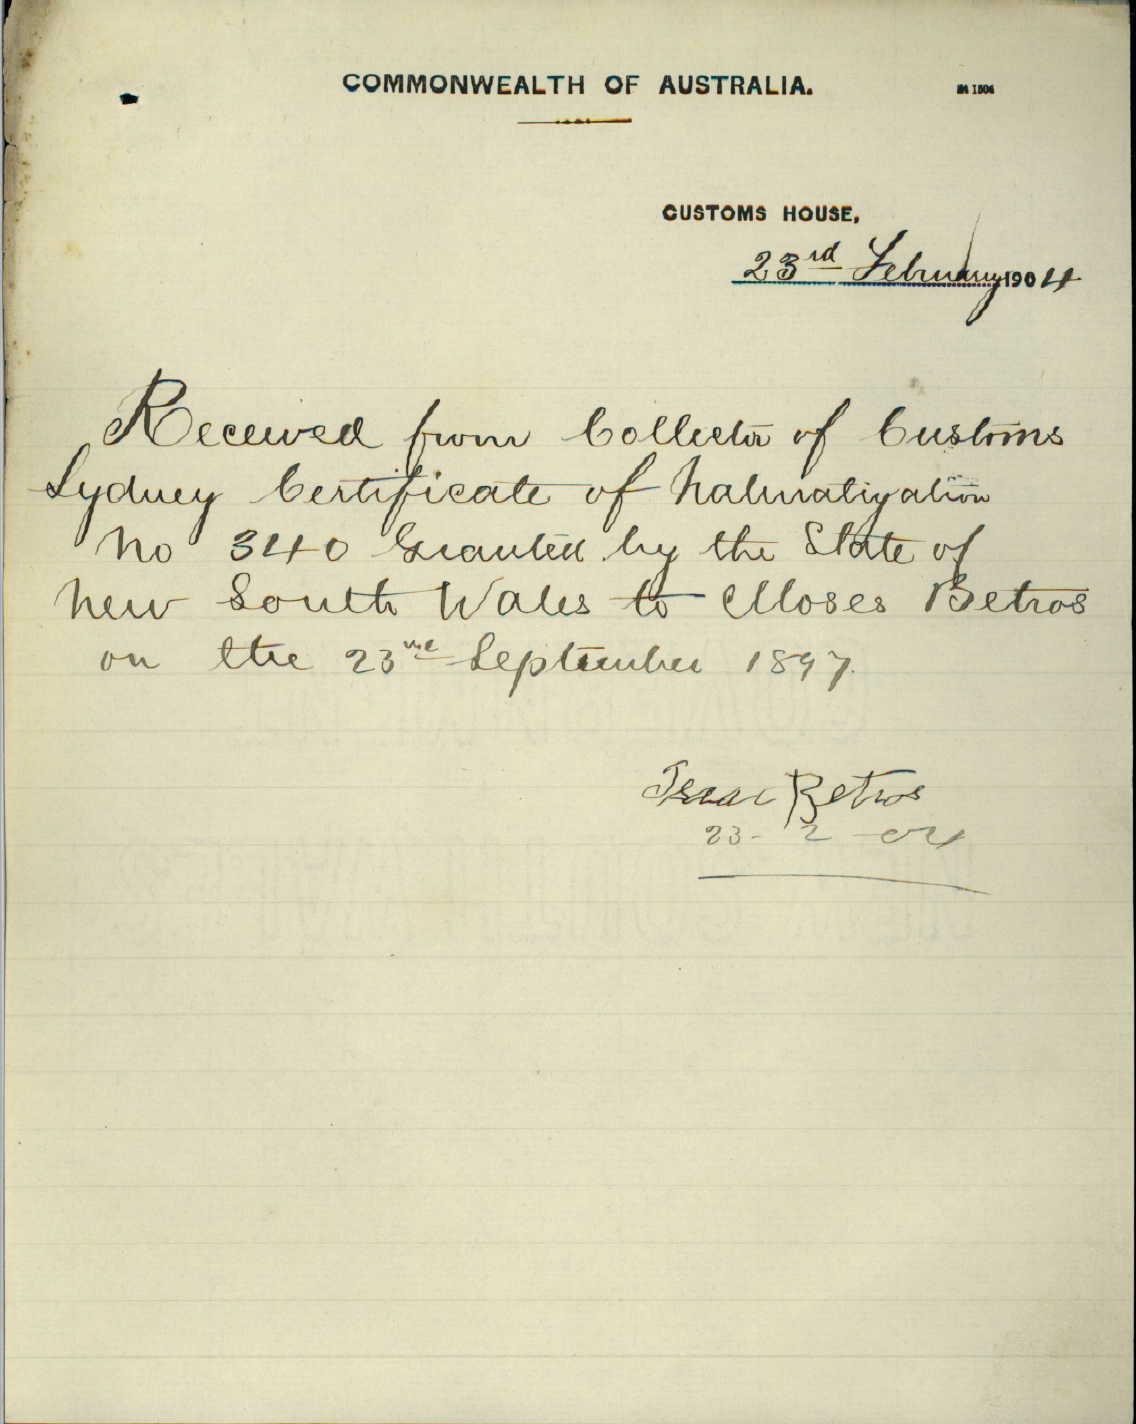 COMMONWEALTH OF AUSTRALIA.
CUSTOMS HOUSE,
23rd February 1904
Received from Collector of Customs
Sydney Certificate of Naturalization
No 340 Granted by the State of
New South Wales to Moses Betros
on the 23rd September 1897.
Isaac Betros
23-2-04